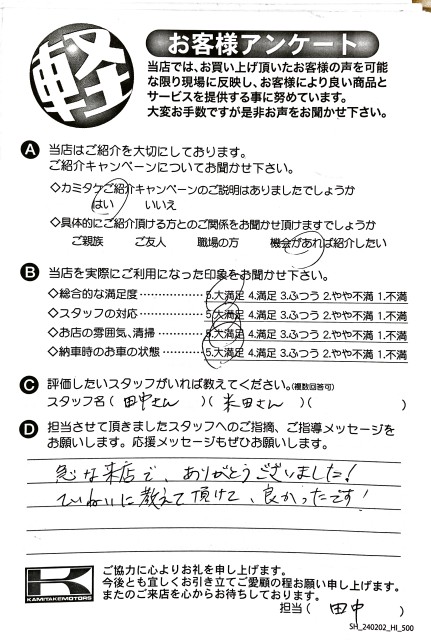 軽
お客様アンケート
当店では、お買い上げ頂いたお客様の声を可能
な限り現場に反映し、お客様により良い商品と
サービスを提供する事に努めています。
大変お手数ですが是非お声をお聞かせ下さい。
A 当店はご紹介を大切にしております。
ご紹介キャンペーンについてお聞かせ下さい。
◇カミタケご紹介キャンペーンのご説明はありましたでしょうか
はい いいえ
◇具体的にご紹介頂ける方とのご関係をお聞かせ頂けますでしょうか
ご親族 ご友人 職場の方 機会があれば紹介したい
B 当店を実際にご利用になった印象をお聞かせ下さい。
◇総合的な満足度……………… 5.大満足 4.満足 3.ふつう 2.やや不満 1.不満
◇スタッフの対応……………… 5.大満足 4.満足 3.ふつう 2.やや不満 1.不満
◇お店の雰囲気、清掃………… 5.大満足 4.満足 3.ふつう 2.やや不満 1.不満
◇納車時のお車の状態………… 5.大満足 4.満足 3.ふつう 2.やや不満 1.不満
C 評価したいスタッフがいれば教えてください。(複数回答可)
スタッフ名( 田中さん )( 米田さん )( )
D 担当させて頂きましたスタッフへのご指摘、ご指導メッセージを
お願いします。応援メッセージもぜひお願いします。
急な来店で、ありがとうございました!
ていねいに教えて頂けて、良かったです!
K
KAMITAKEMOTORS
ご協力に心よりお礼を申し上げます。
今後とも宜しくお引き立てご愛顧の程お願い申し上げます。
またのご来店を心からお待ちしております。
担当( 田中 )
SH_240202_HI_500